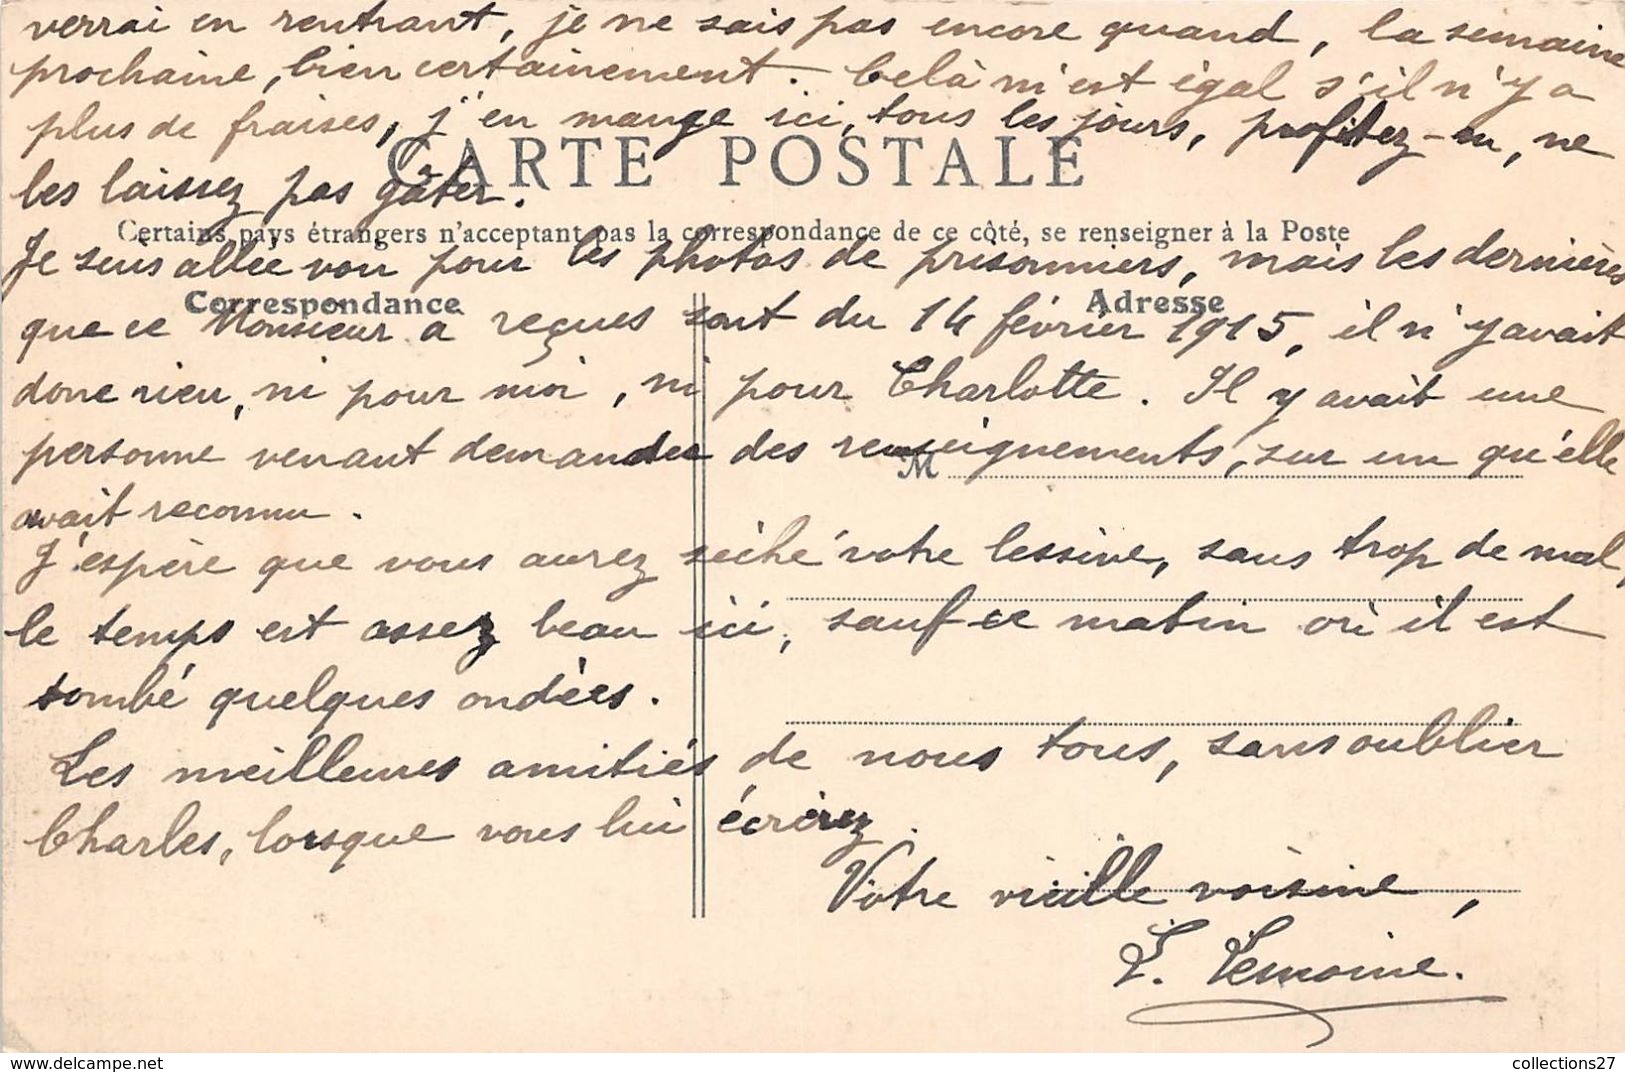 verrai en rentrant, je ne sais pas encore quand, la semaine
prochaine, bien certainement. Celà m'est égal s'il n'y a
plus de fraises, j'en mange ici, tous les jours, profitez-en, ne
CARTE POSTALE
les laissez pas gâter.
Certains pays étrangers n'acceptant pas la correspondance de ce côté, se renseigner à la Poste
Je suis allée voir pour les photos de prisonniers, mais les dernières
Correspondance
Adresse
que ce Monsieur a reçues sont du 14 février 1915, il n'y avait
donc rien, ni pour moi, ni pour Charlotte. Il y avait une
personne venant demander des renseignements, sur un qu'elle
M
avait reconnu.
J'espère que vous aurez séché votre lessive, sans trop de mal,
le temps est assez beau ici, sauf ce matin où il est
tombé quelques ondées.
Les meilleures amitiés de nous tous, sans oublier
Charles, lorsque vous lui écrirez.
Votre vieille voisine,
L. Lemoine.
collections27